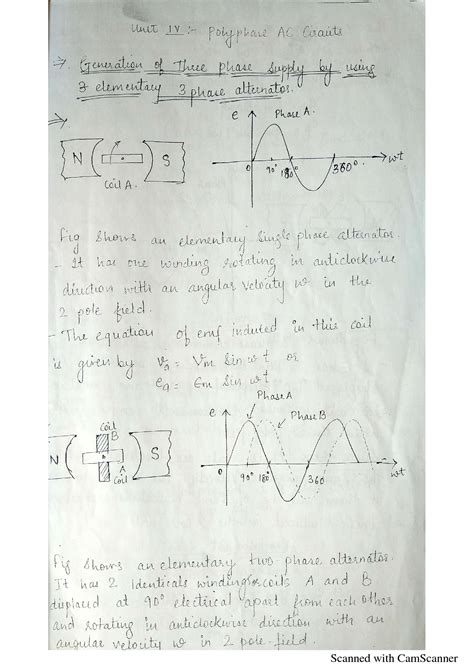 Unit IV :- Polyphase AC Circuits
⇒ Generation of Three phase supply by using
& elementary 3 phase alternator.
e Phase A.
N S
0 90° 180° 360° wt
Coil A.
Fig Shows an elementary Single phase alternator.
- It has one winding rotating in anticlockwise
direction with an angular velocity w in the
2 pole field.
- The equation of emf induced in this coil
is given by va = Vm Sin wt or
ea = Em Sin wt
Phase A
e Phase B
Coil
B
N S
A
Coil
0 90° 180° 360 wt
Fig Shows an elementary two phase alternator.
It has 2 Identicals windings or coils A and B
displaced at 90° electrical apart from each other
and rotating in anticlockwise direction with an
angular velocity w in 2 pole field.
Scanned with CamScanner